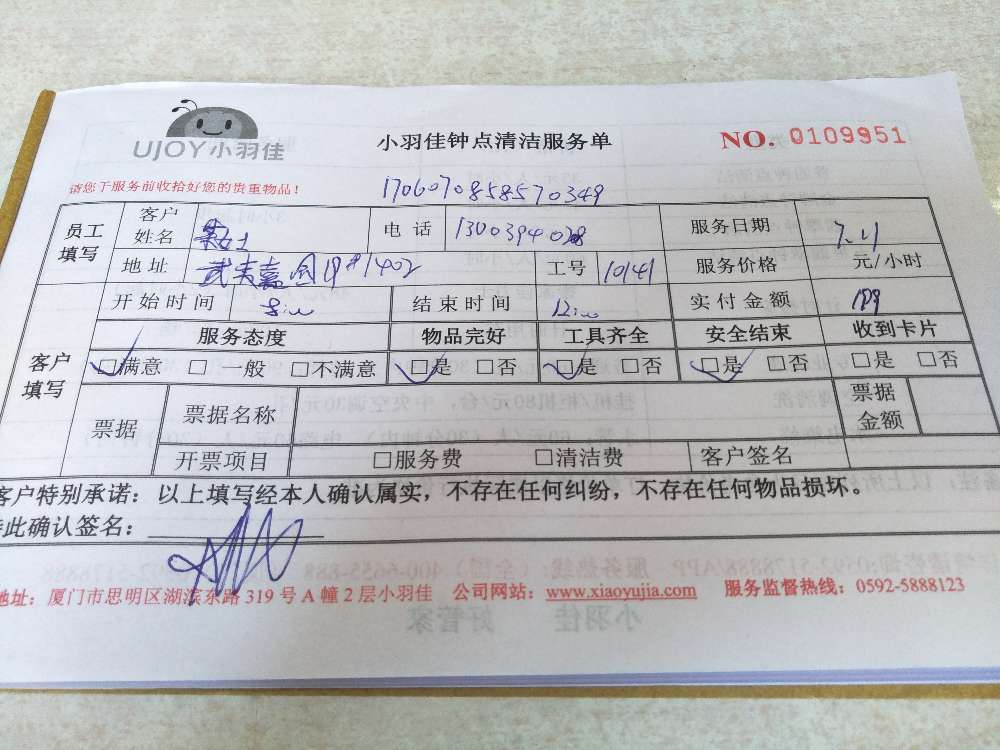 UJOY小羽佳
小羽佳钟点清洁服务单
NO. 0109951
请您于服务前收拾好您的贵重物品！
170607085857 0349
员工填写 客户姓名 女士 电话 服务日期 7.21
地址 武夷嘉园19#1402 工号 10141 服务价格 元/小时
客户填写 开始时间 8:00 结束时间 12:00 实付金额
服务态度 物品完好 工具齐全 安全结束 收到卡片
☑满意 □一般 □不满意 ☑是 □否 ☑是 □否 ☑是 □否 □是 □否
票据 票据名称 票据金额
开票项目 □服务费 □清洁费 客户签名
客户特别承诺：以上填写经本人确认属实，不存在任何纠纷，不存在任何物品损坏。
特此确认签名：
地址：厦门市思明区湖滨东路319号A幢2层小羽佳 公司网站：www.xiaoyujia.com 服务监督热线：0592-5888123